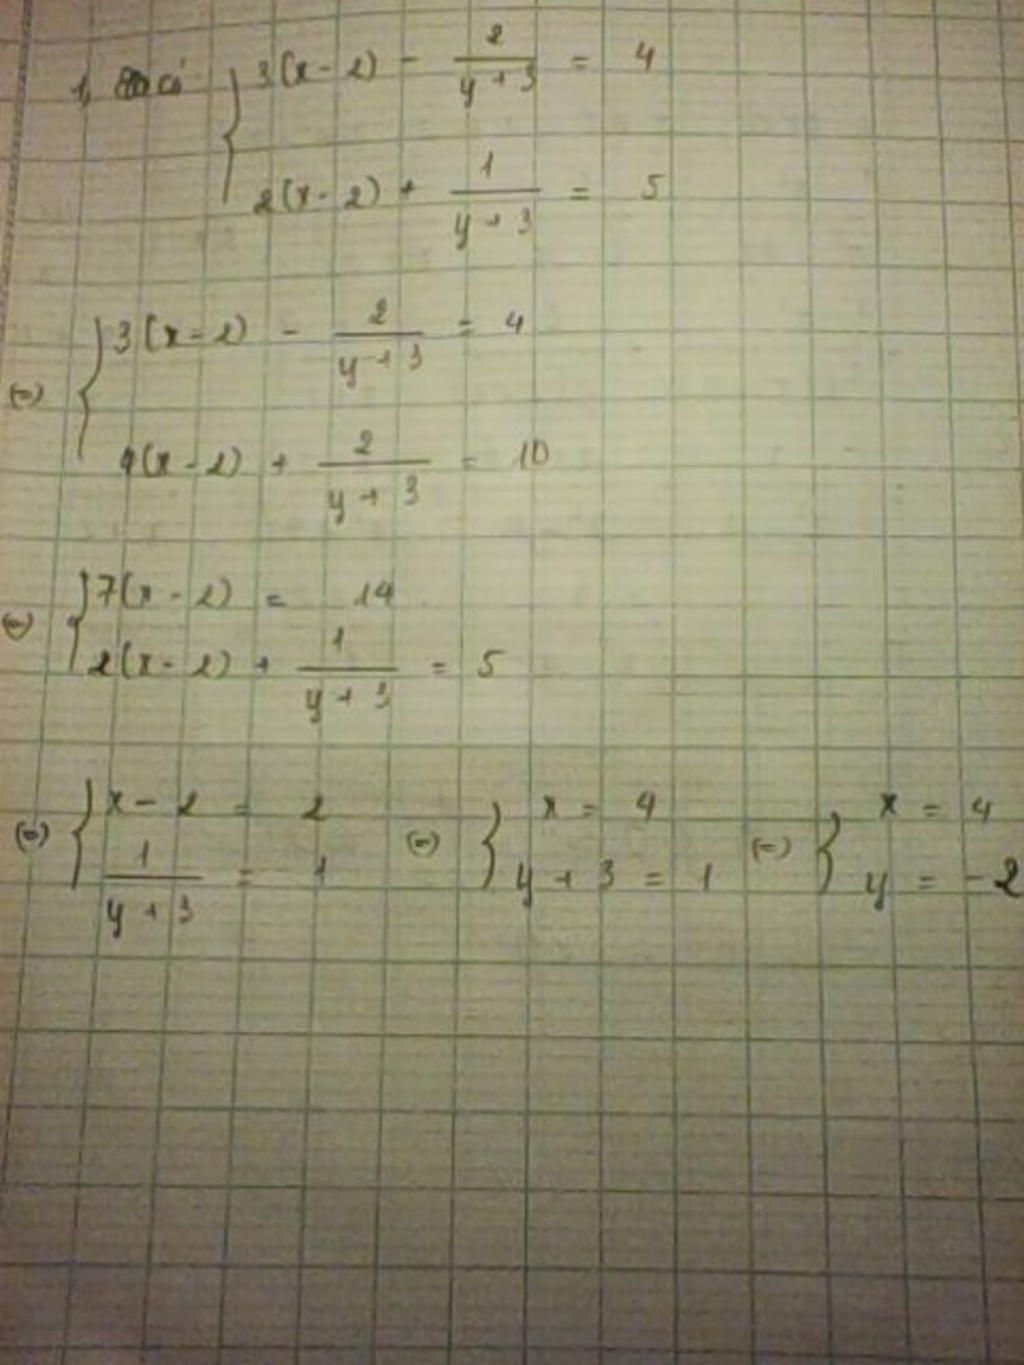 1, có { 3(x - 2) - 2/(y + 3) = 4
2(x - 2) + 1/(y + 3) = 5
(=) { 3(x - 2) - 2/(y + 3) = 4
4(x - 2) + 2/(y + 3) = 10
(=) { 7(x - 2) = 14
2(x - 2) + 1/(y + 3) = 5
(=) { x - 2 = 2 (=) { x = 4 (=) { x = 4
1/(y + 3) = 1 y + 3 = 1 y = -2